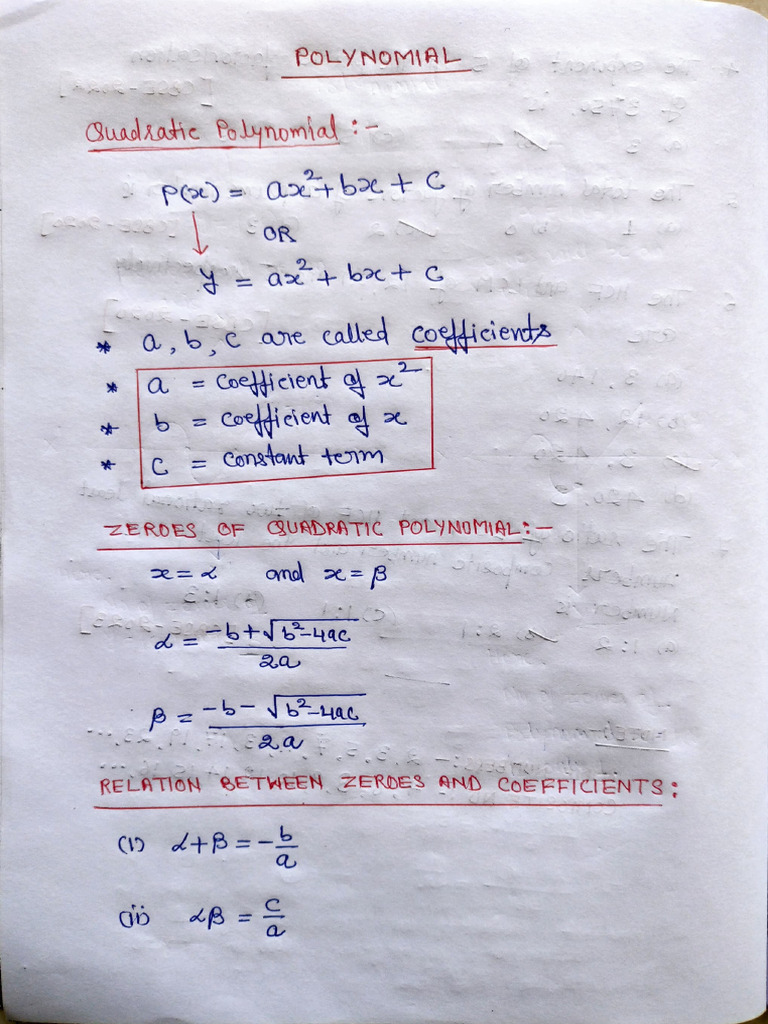 POLYNOMIAL
Quadratic Polynomial :-
P(x) = ax² + bx + c
OR
y = ax² + bx + c
* a, b, c are called coefficients
* a = coefficient of x²
* b = coefficient of x
* c = constant term
ZEROES OF QUADRATIC POLYNOMIAL:-
x = α and x = β
α = (-b + √(b²-4ac))/2a
β = (-b - √(b²-4ac))/2a
RELATION BETWEEN ZEROES AND COEFFICIENTS:
(i) α+β = -b/a
(ii) αβ = c/a